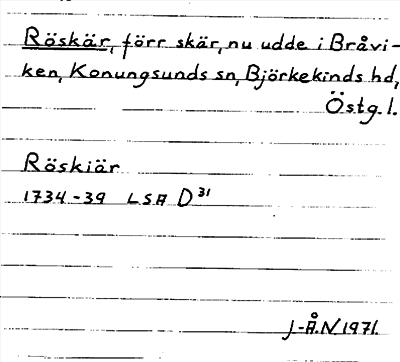 Röskär, förr skär, nu udde i Bråvi-
ken, Konungsunds sn, Björkekinds hd,
Östg. l.
Röskiär
1734-39 LSA D³¹
J-Å.N 1971.